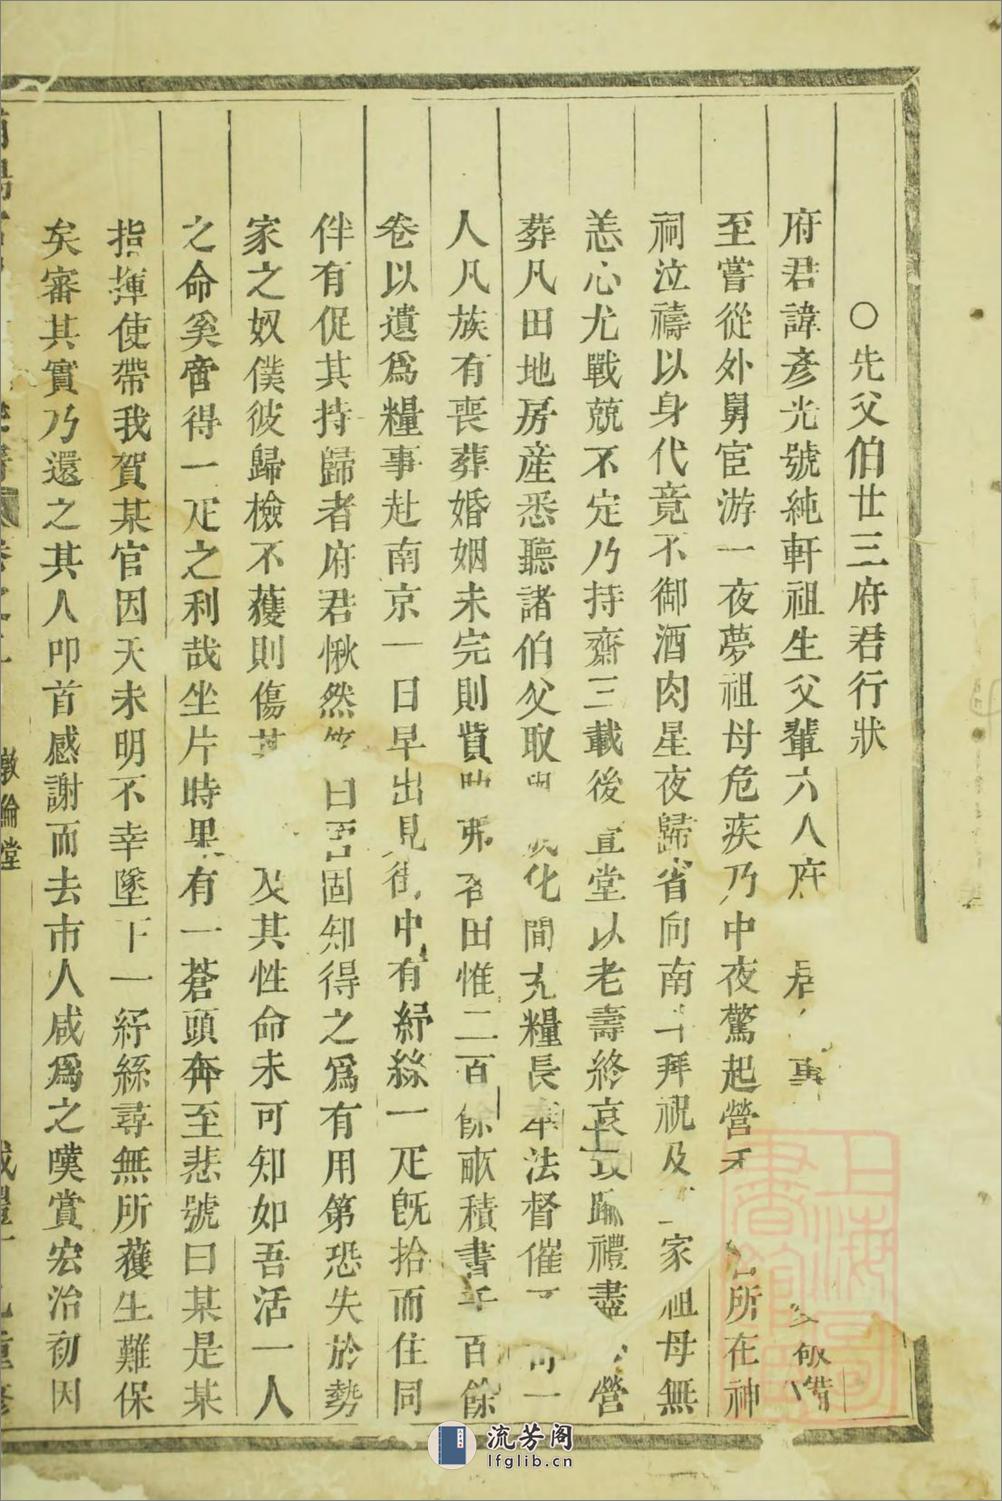 ○先父伯廿三府君行狀
府君諱彥光號純軒祖生父輩六人府君
至嘗從外舅宦游一夜夢祖母危疾乃中夜驚起營 所在神
祠泣禱以身代竟不御酒肉星夜歸省向南 拜祝及 家祖母無
恙心尤戰兢不定乃持齋三載後 堂以老壽終哀 禮盡 營
葬凡田地房産悉聽諸伯父取 化間充糧長奉法督催 一
人凡族有喪葬婚姻未完則貲 田惟二百餘畝積書 百餘
卷以遺爲糧事赴南京一日早出見街中有紵絲一疋旣拾而住同
伴有促其持歸者府君愀然 曰吾固知得之爲有用第恐失於勢
家之奴僕彼歸檢不獲則傷其 及其性命未可知如吾活一人
之命奚啻得一疋之利哉坐片時果有一蒼頭奔至悲號曰某是某
指揮使帶我賀某官因天未明不幸墜下一紵絲尋無所獲生難保
矣審其實乃還之其人叩首感謝而去市人咸爲之嘆賞宏治初因
敦倫堂
上海圖書館藏
流芳阁
lfglib.cn